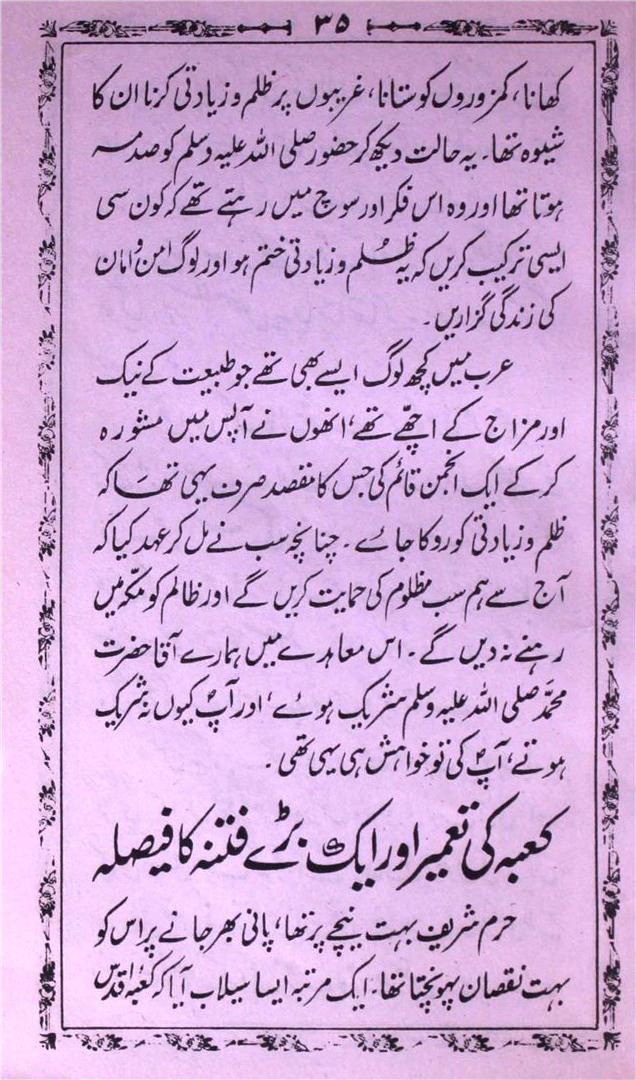 ۳۵
کھانا، کمزوروں کو ستانا، غریبوں پر ظلم و زیادتی کرنا ان کا
شیوہ تھا۔ یہ حالت دیکھ کر حضور صلی اللہ علیہ وسلم کو صدمہ
ہوتا تھا اور وہ اس فکر اور سوچ میں رہتے تھے کہ کون سی
ایسی ترکیب کریں کہ یہ ظلم و زیادتی ختم ہو اور لوگ امن و امان
کی زندگی گزاریں۔
عرب میں کچھ لوگ ایسے بھی تھے جو طبیعت کے نیک
اور مزاج کے اچھے تھے، انھوں نے آپس میں مشورہ
کر کے ایک انجمن قائم کی جس کا مقصد صرف یہی تھا کہ
ظلم و زیادتی کو روکا جائے۔ چنانچہ سب نے مل کر عہد کیا کہ
آج سے ہم سب مظلوم کی حمایت کریں گے اور ظالم کو مکّہ میں
رہنے نہ دیں گے۔ اس معاہدے میں ہمارے آقا حضرت
محمدؐ صلی اللہ علیہ وسلم شریک ہوئے، اور آپؐ کیوں نہ شریک
ہوتے، آپؐ کی تو خواہش ہی یہی تھی۔
کعبہ کی تعمیر اور ایک بڑے فتنہ کا فیصلہ
حرم شریف بہت نیچے پر تھا، پانی بھر جانے پر اس کو
بہت نقصان پہونچتا تھا۔ ایک مرتبہ ایسا سیلاب آیا کہ کعبۂ اقدس